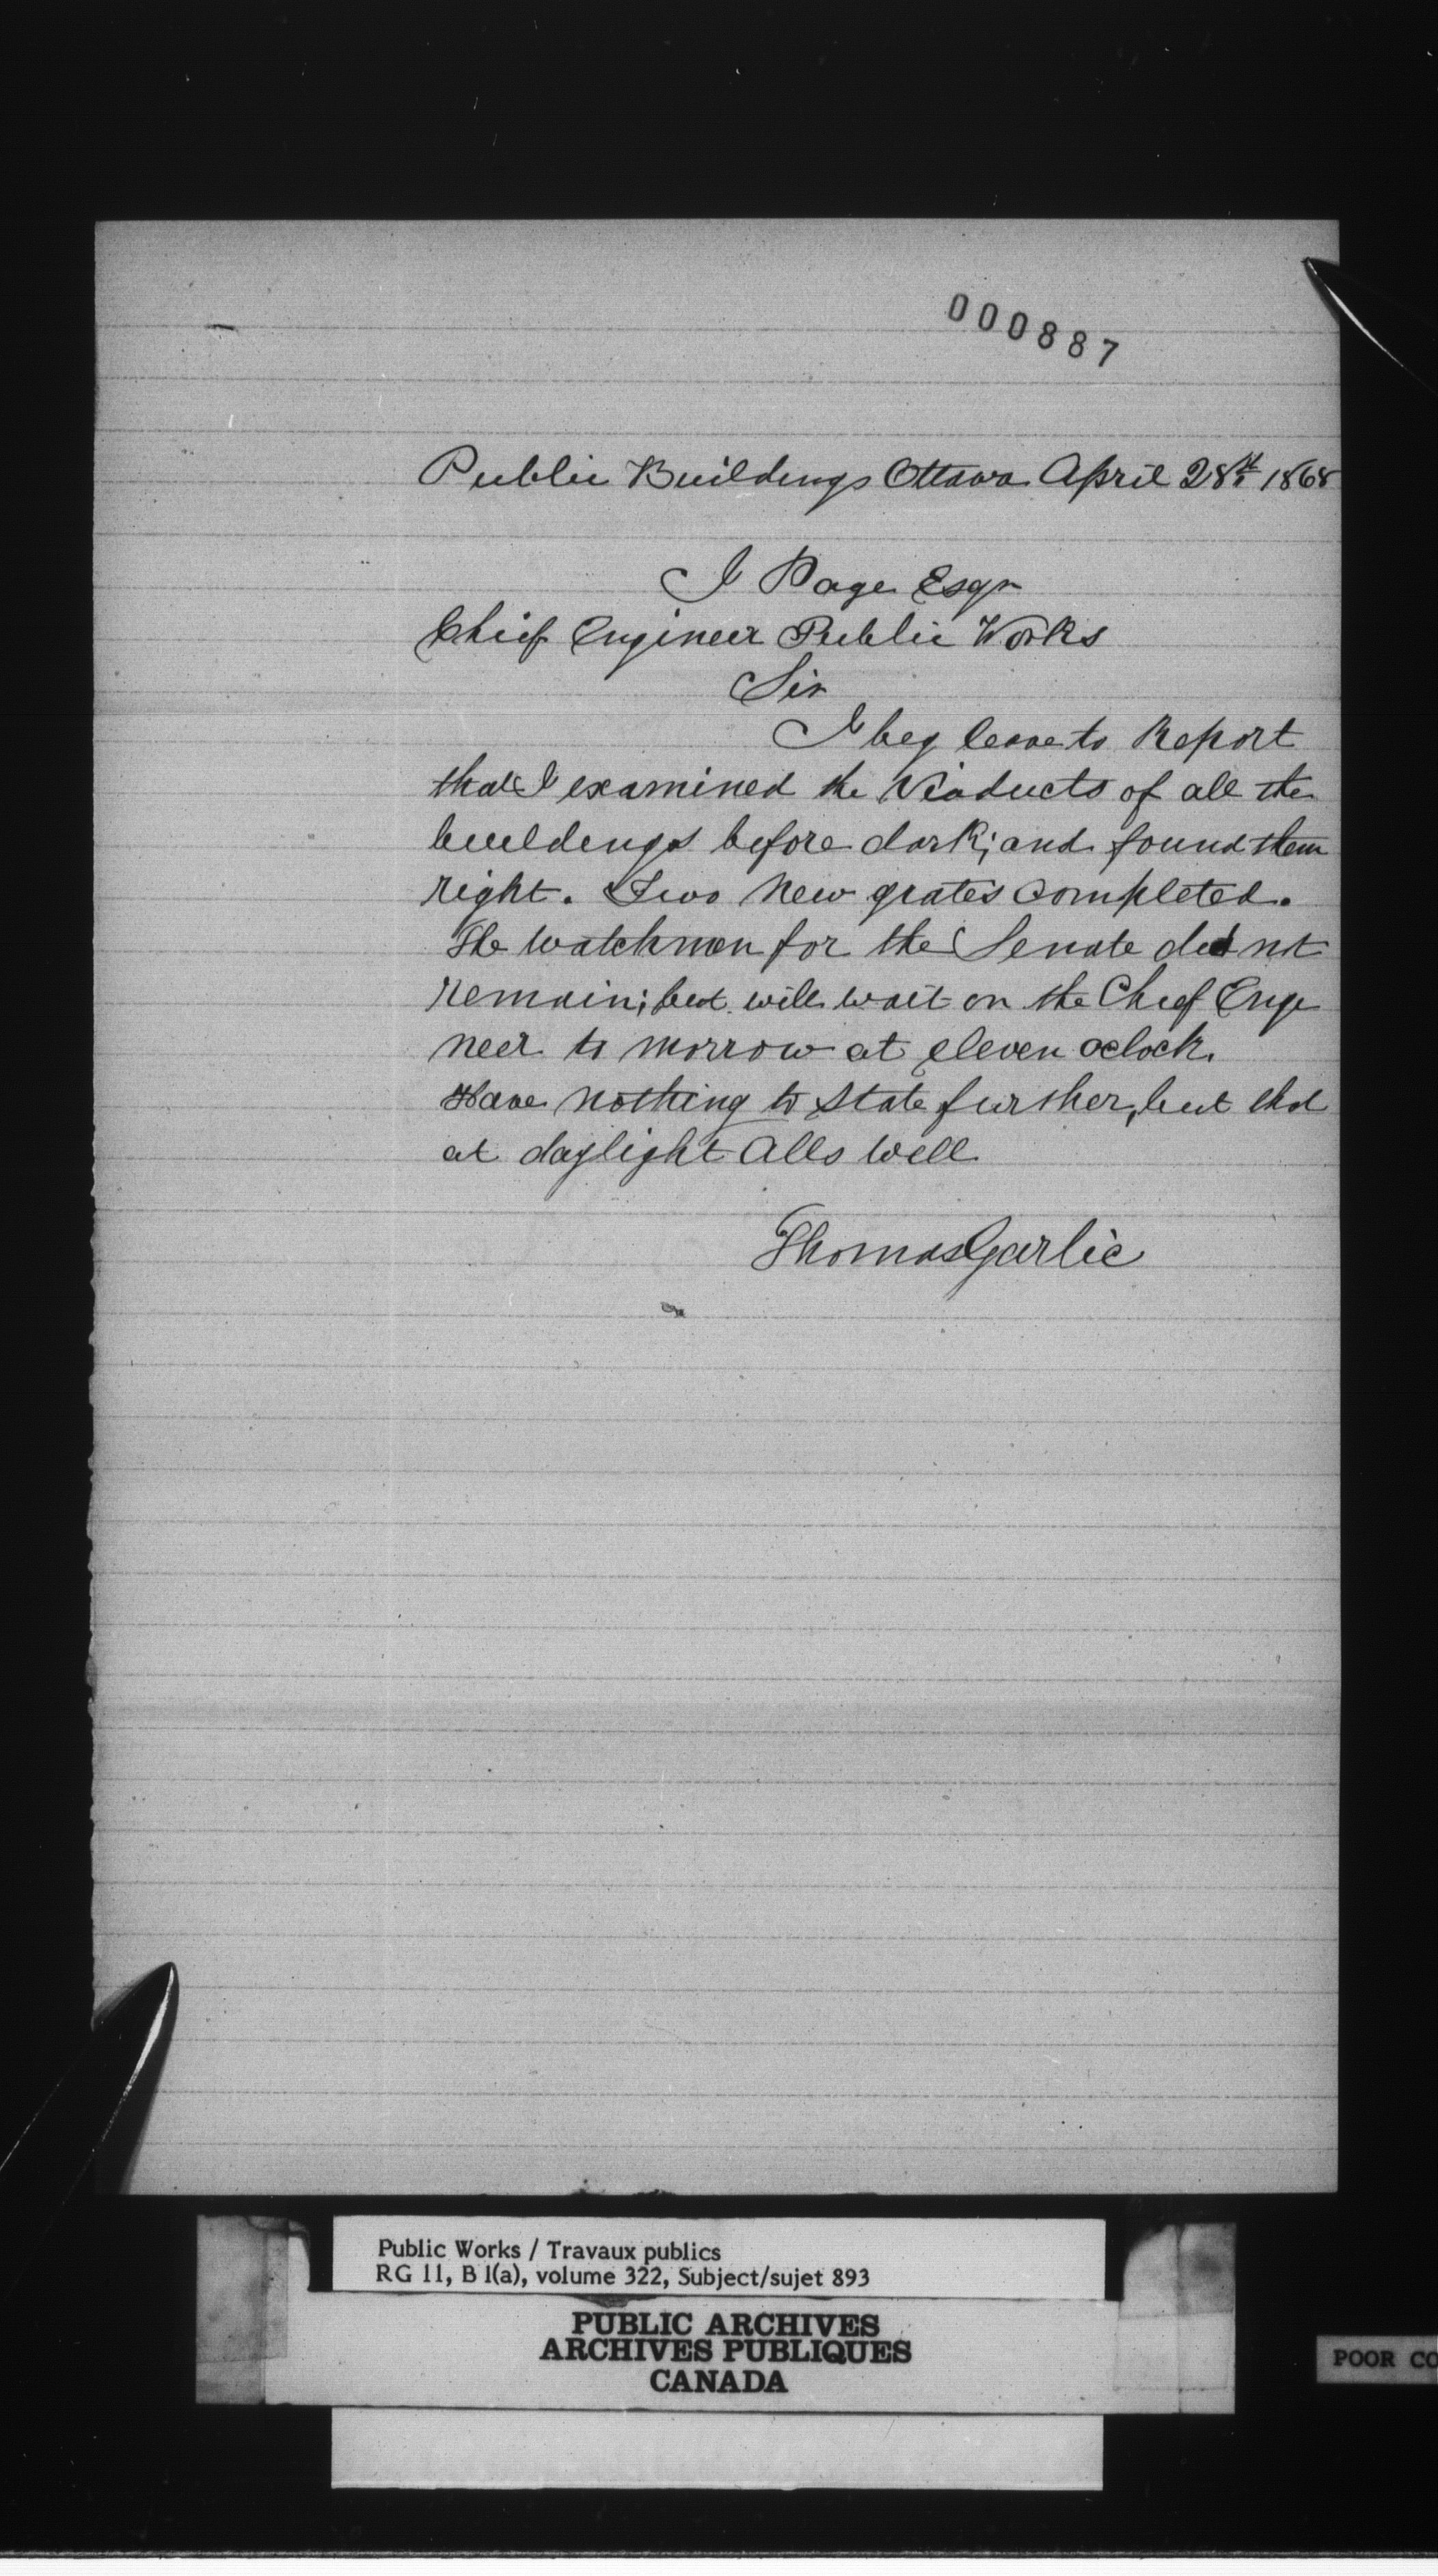 000887
Public Buildings Ottawa April 28th 1868
J Page Esqr
Chief Engineer Public Works
Sir
I beg leave to Report
that I examined the Viaducts of all the
buildings before dark; and found them
right. Two new grates completed.
The watchman for the Senate did not
remain; but will wait on the Chief Engi
neer to morrow at eleven oclock.
Have nothing to state further, but that
at daylight Alls well
Thomas Garlic
Public Works / Travaux publics
RG 11, B 1(a), volume 322, Subject/sujet 893
PUBLIC ARCHIVES
ARCHIVES PUBLIQUES
CANADA
POOR CO